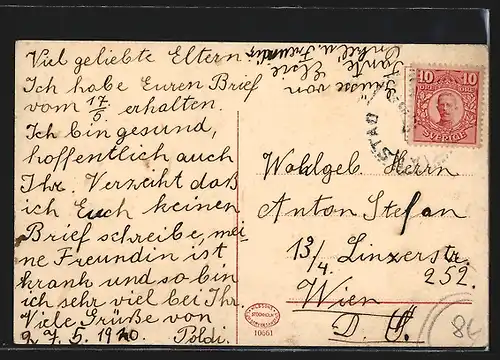 Viel geliebte Eltern!
Ich habe Euren Brief
vom 17/5 erhalten.
Ich bin gesund,
hoffentlich auch
Ihr. Verzeiht daß
ich Euch keinen
Brief schreibe, mei-
ne Freundin ist
krank und so bin
ich sehr viel bei Ihr.
Viele Grüße von
27.5.1920 Poldi.
Grüsse von
Tante Elore
Onkel u. Freunden
10 10
SVERIGE
STAD
Wohlgeb. Herrn
Anton Stefan
13/4. Linzerstr.
252.
Wien
D. Ö.
STOCKHOLM
10661